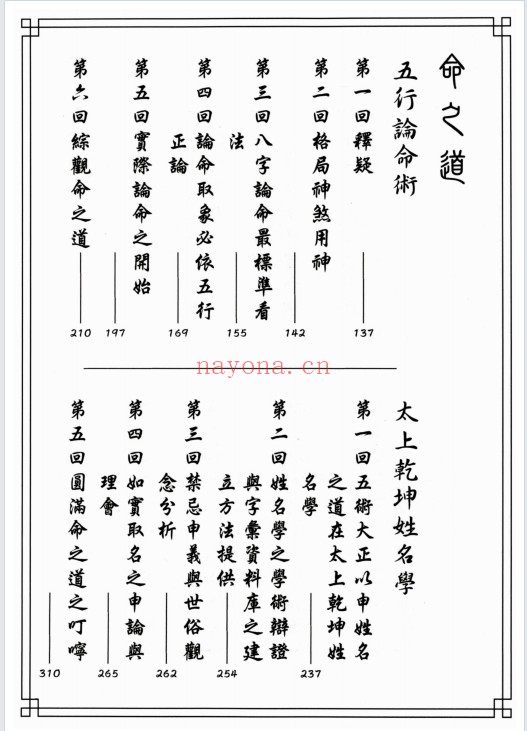 命之道
五行論命術
第一回釋疑
137
第二回格局神煞用神
142
第三回八字論命最標準看
法
155
第四回論命取象必依五行
正論
169
第五回實際論命之開始
197
第六回綜觀命之道
210
nayona.cn
太上乾坤姓名學
第一回五術大正以申姓名
之道在太上乾坤姓
名學
237
第二回姓名學之學術辯證
與字彙資料庫之建
立方法提供
254
第三回禁忌申義與世俗觀
念分析
262
第四回如實取名之申論與
理會
265
第五回圓滿命之道之叮嚀
310